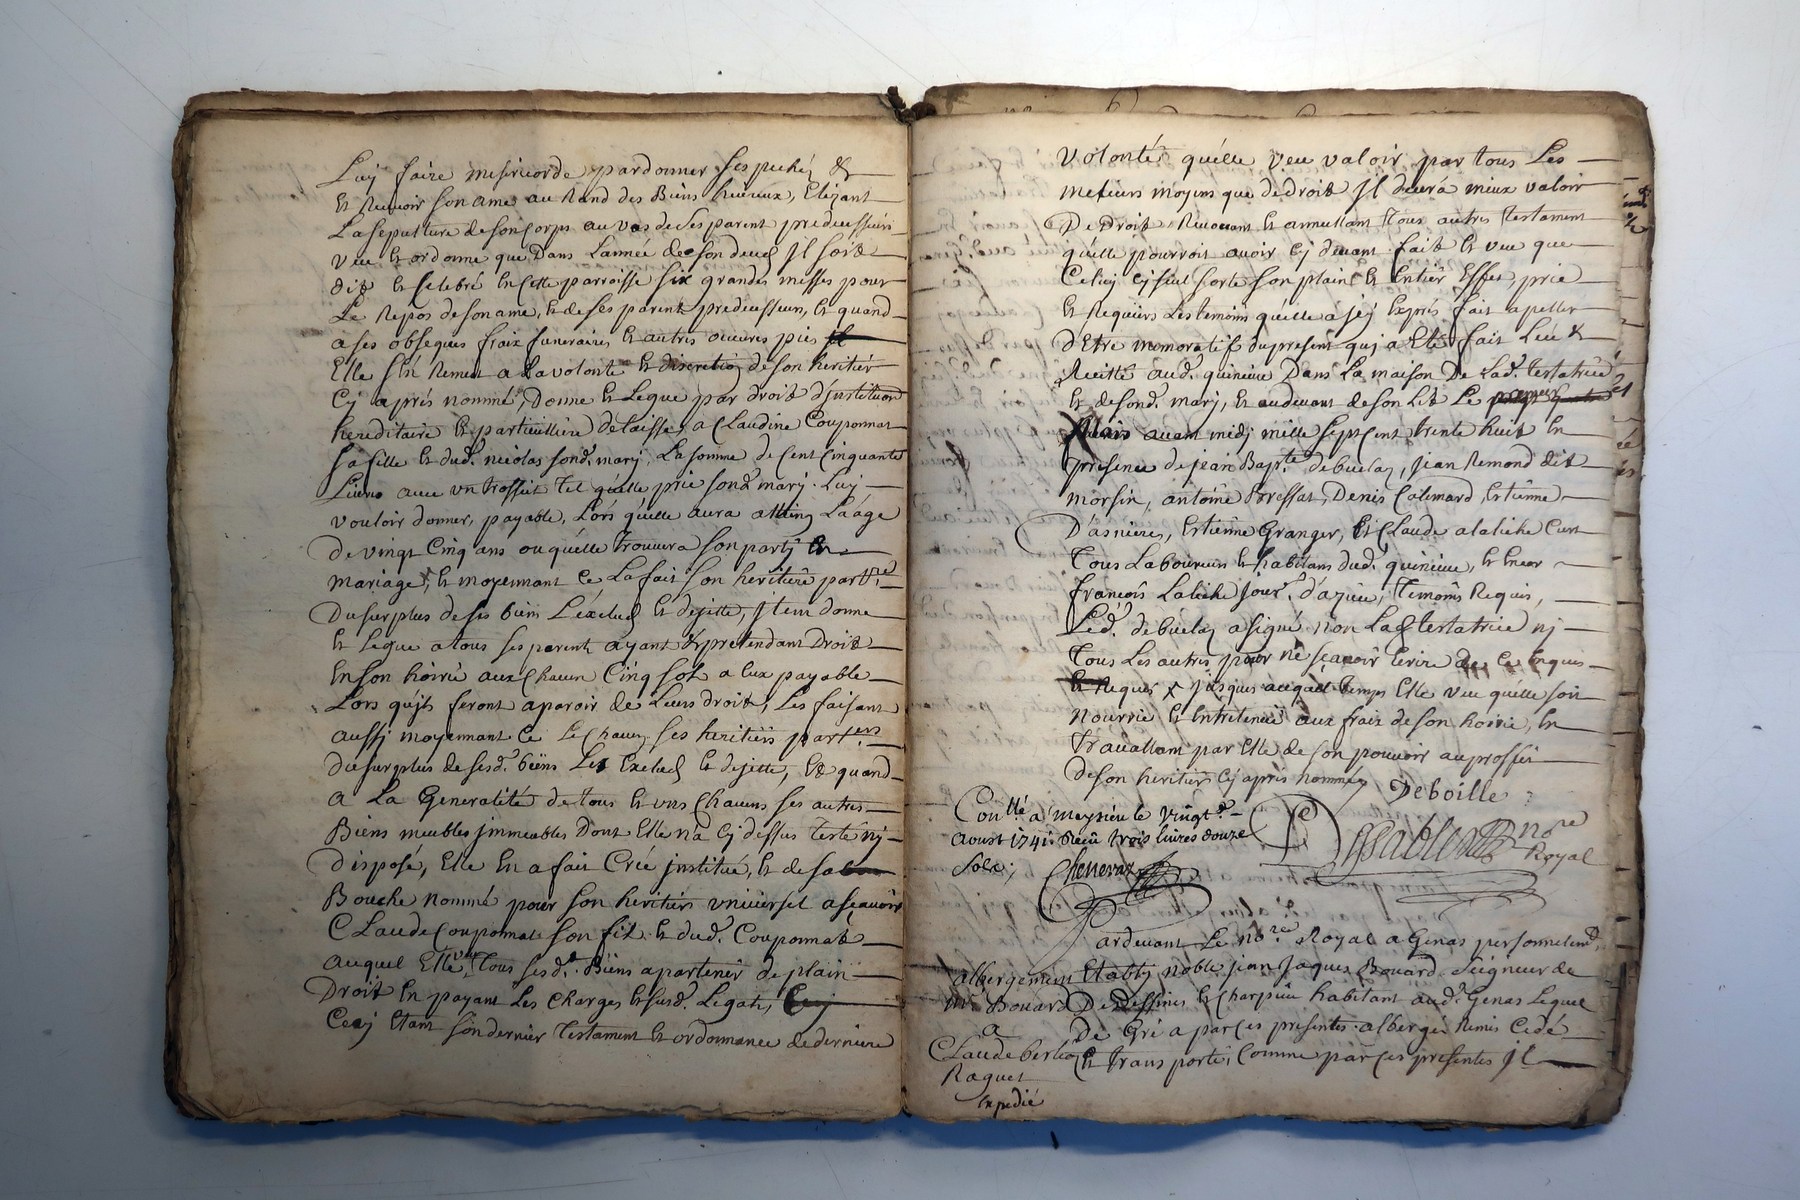 Luy faire misericorde pardonner ses pechéz &
et recevoir son ame au Rand des Biens heureux, Elizant
La sepulture de son Corps au vas de ses parent predecesseurs
veu et ordonne que Dans Lannée de son deced Jl soit
dit et celebré en cette parroisse six grandes messes pour
Le Repos de son ame, et de ses parent predecesseurs, et quand
a ses obseques fraix funeraires et autres oeuvres pies
Elle s'en Remet a La volonté et discretion de son heritier
Cy aprés nommé, Donne et Legue par droit d'institution
hereditaire et particulliere delaisse, a Claudine Couponnat
sa fille et dud. nicolas sond. mary, La somme de Cent Cinquante
Livres avec un trosseit tel quelle prie sond mary Luy
vouloir donner, payable, Lors quelle aura atteing Laage
de vingt Cinq ans ou quelle trouvera son party En
mariage, et moyennant ce La fait son heritiere part.re
Du surplus de ses biens L'éxclud et dejette, Jtem donne
et Legue a tous ses parent ayant & pretendant Droit
En son hoirie aux Chacun Cinq sol a Eux payable
Lors qu'jls feront aparoir de Leurs droit, Les faisant
aussy moyennant ce Le Chacun ses heritiers part.ers
du surplus de sesd. biens Les Exclud et dejette, Et quand
a La Generalité de tous et uns Chacuns ses autres
Biens meubles jmmeubles Dont Elle n'a cy dessus testé ny
disposé, Elle En a fait Créé jnstitué, et de sa
Bouche nommé pour son heritiers universel a sçavoir
Claude Couponnat son fil et dud. Couponnat
auquel Elle veut tous sesd. Biens apartenir de plain
Droit En payant Les Charges et susd. Legats,
Cecy Etant son dernier testament et ordonnance de derniere
volonté quelle veu valoir par tous Les
melieurs moyens que de droit Jl devra mieux valoir
De Droit Revocant et annullant Tous autres testament
qu'elle pourroit avoir cy devant fait et veu que
Celuy cy seul sorte son plain et Entier Effet, prie
et Requiers Les temoins qu'elle a jcy Exprés fait apeller
d'Etre memoratif du present quj a Eté fait Leu &
Recitté aud. quincieu Dans La maison De Lad. testatrice
et de sond. mary, et au devant de son Lit Le premier
Mars avant midj mille sept Cent trente huit En
presence de jean Bap.te debuclay, jean Remond dit
morsin, antoine Bressat, Denis Calemard Estienne
D'asnieres, Estienne Granger, Et Claude alaliche Curt
Tous Laboureurs et habitans dud. quincieu, et Encor
francois Laliche jour. d'azieu, Temoins Requis,
Led. debuclay a signé non Lad testatrice nj
Tous Les autres pour ne sçavoir Ecrire de ce Enquis
et Requis x jusques auquel temps Elle veu quelle soit
Nourrie et Entretenuë aux fraix de son hoirie, En
travaillant par Elle de son pouvoir au proffit
de son heritier cy apres nommé
Deboille
Con.llé a meyzieu le vingt
Aoust 1741 Receu trois livres douze
Sols;
Chenevaz
Desablon no.re
Royal
Pardevant Le no.re Royal a Genas personnelem.t
Etably noble jean Jaques Bouard Seigneur de
De dessines et Charpieu habitant aud. Genas Lequel
De Gré a par ces presentes albergé Remis Cedé
et transporté, Comme par ces presentes jl
albergement
Mr Bouard
a
Claude berlioz
Raquet
Expedié